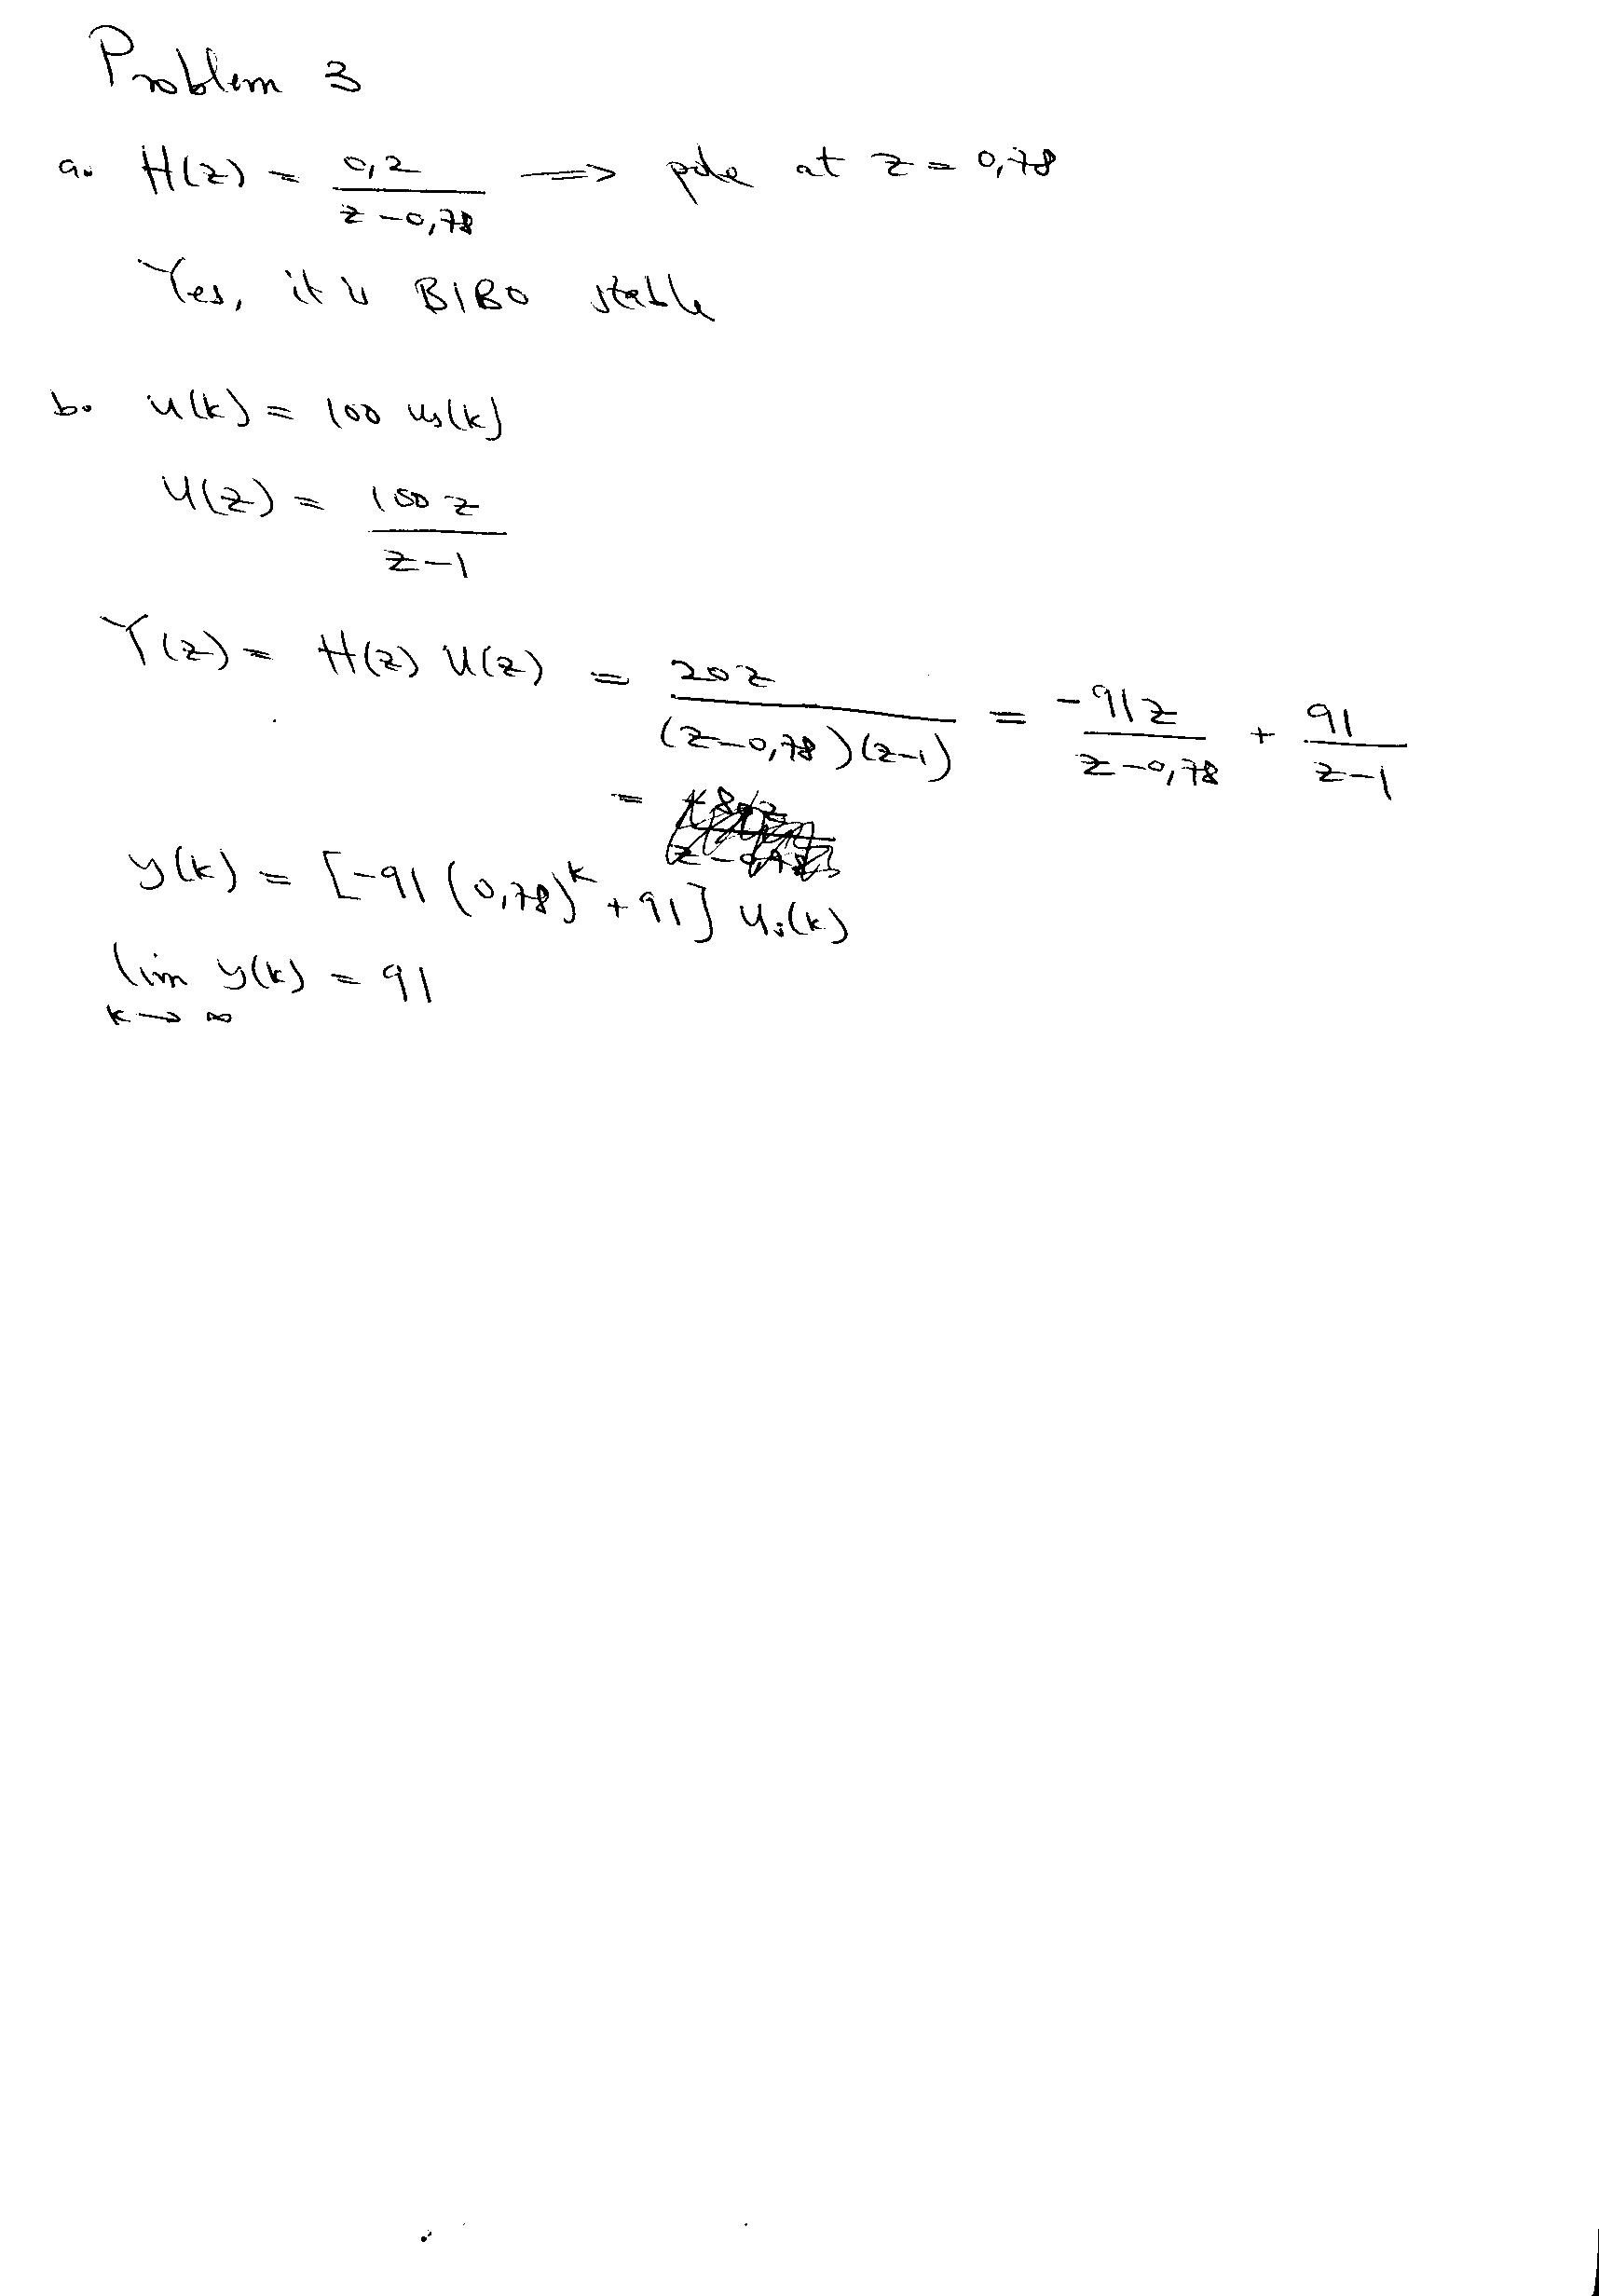 Problem 3
a. H(z) = 0,2 / (z - 0,78) => pole at z = 0,78
Yes, it is BIBO stable
b. u(k) = 100 us(k)
U(z) = 100 z / (z - 1)
Y(z) = H(z) U(z) = 20z / ((z - 0,78)(z - 1)) = -91z / (z - 0,78) + 91 / (z - 1)
=
y(k) = [-91 (0,78)^k + 91] us(k)
lim y(k) = 91
k → ∞